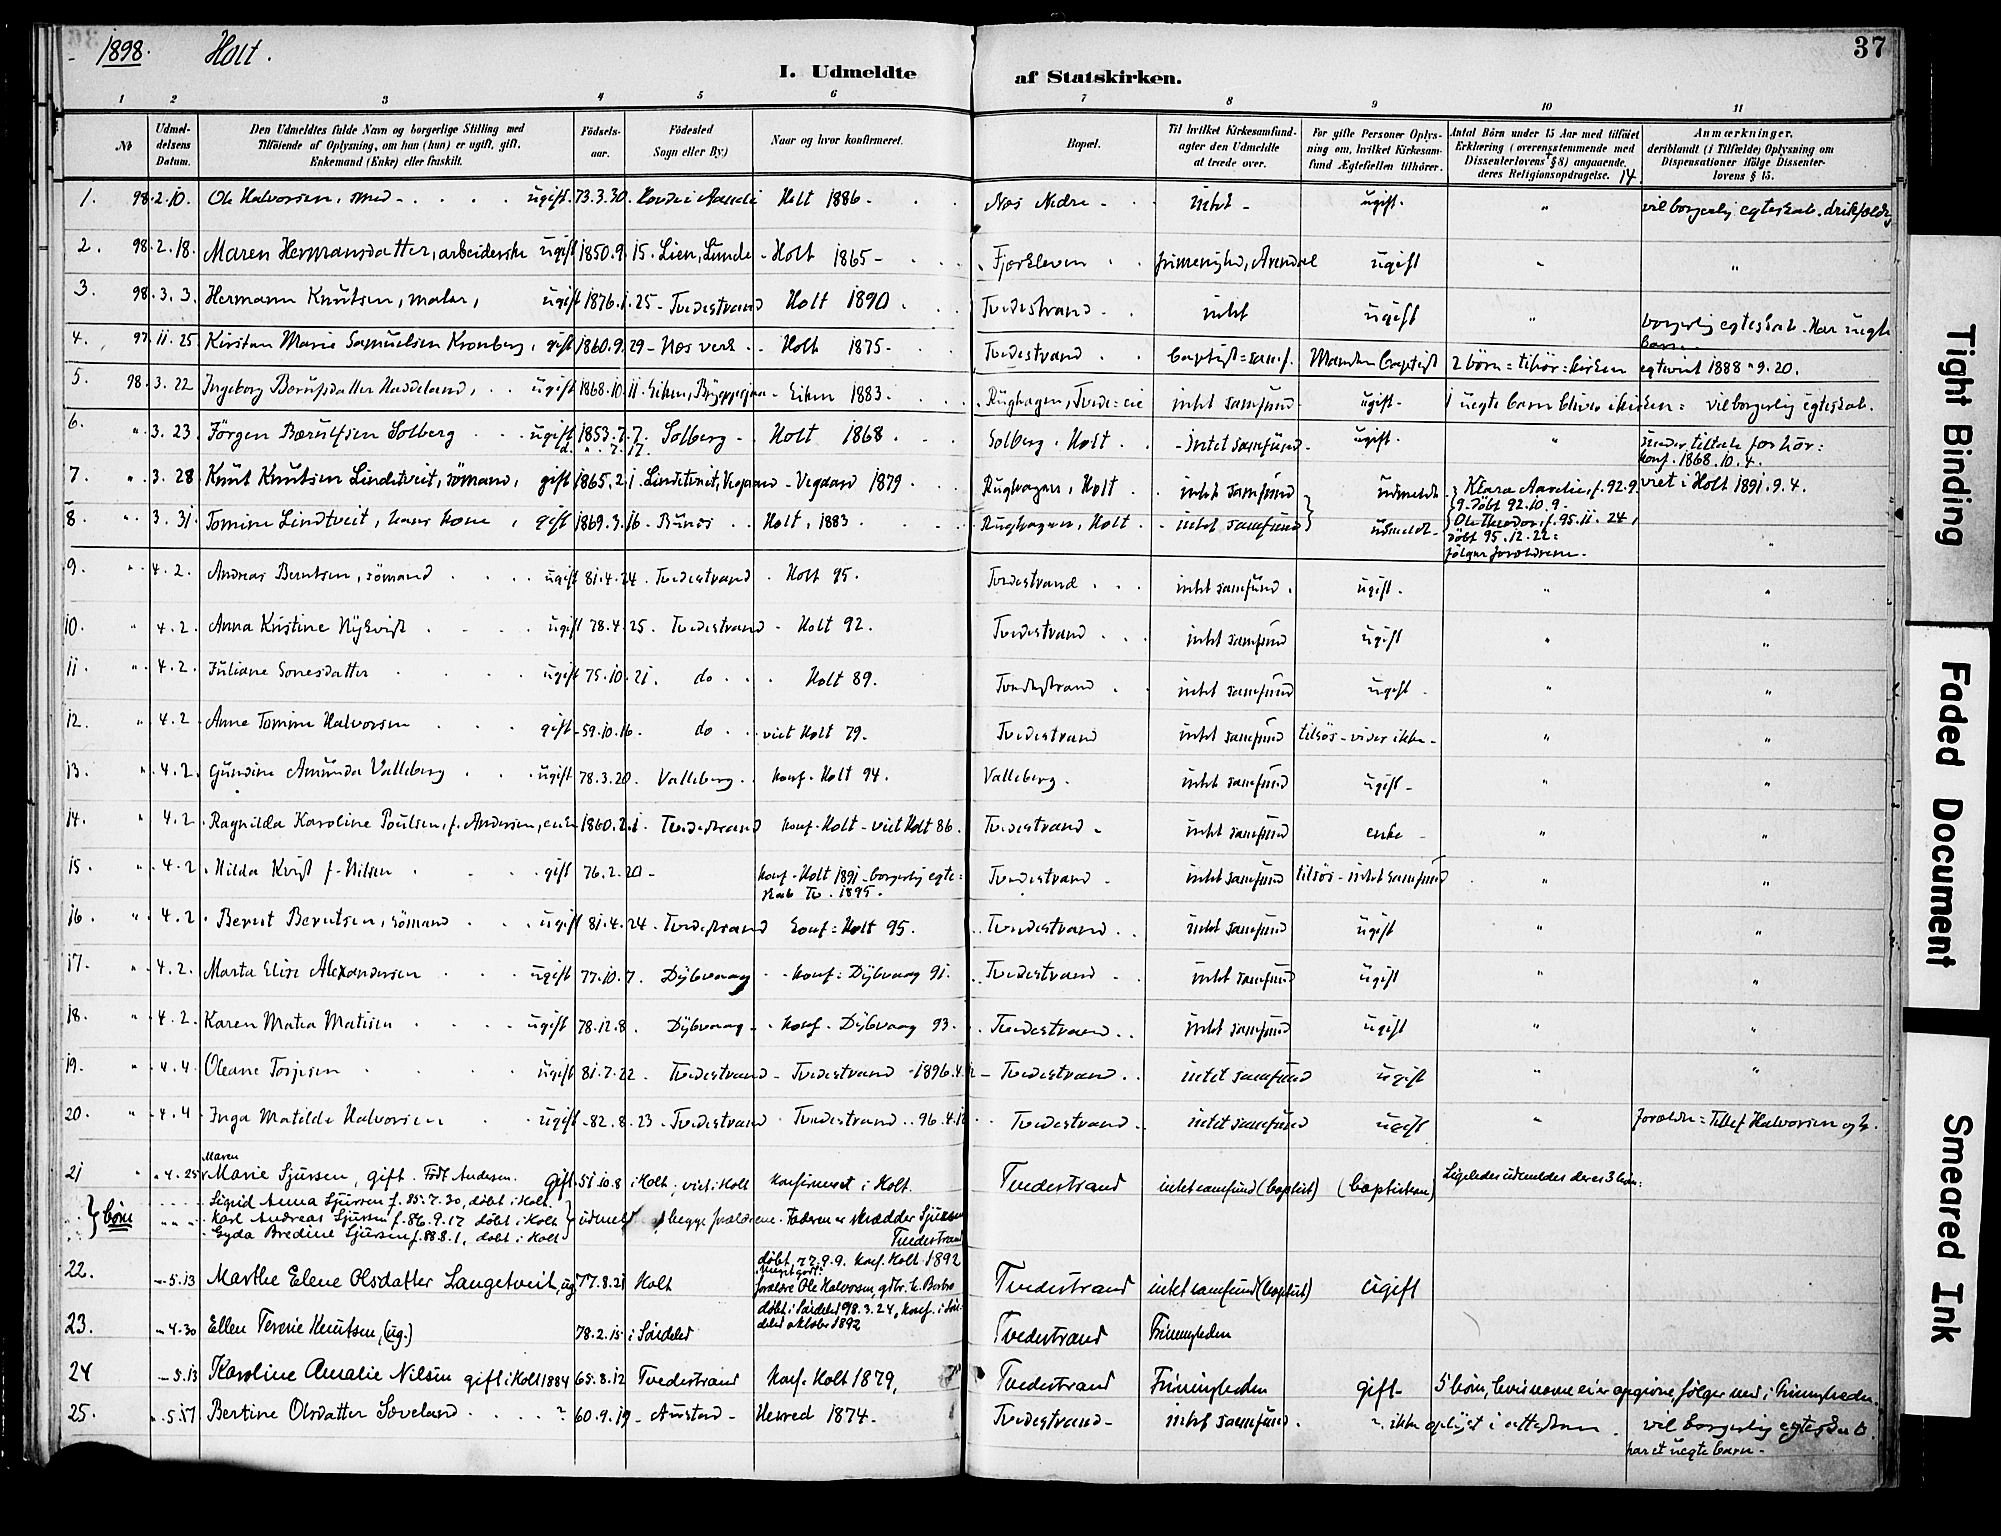 1898. Holt.
37
I. Udmeldte af Statskirken.
1 2 3 4 5 6 7 8 9 10 11
No
Udmeldelsens Datum.
Den Udmeldtes fulde Navn og borgerlige Stilling med Tilföiende af Oplysning, om han (hun) er ugift, gift, Enkemand (Enke) eller fraskilt.
Födselsaar.
Födested Sogn eller By.)
Naar og hvor konfirmeret.
Bopæl.
Til hvilket Kirkesamfund agter den Udmeldte at træde over.
For gifte Personer Oplysning om, hvilket Kirkesamfund Ægtefællen tilhörer.
Antal Börn under 15 Aar med tilföiet Erklæring (overensstemmende med Dissenterlovens § 8) angaaende, deres Religionsopdragelse. 14
Anmærkninger, deriblandt (i Tilfælde) Oplysning om Dispensationer ifölge Dissenterlovens § 15.
1. 98. 2. 10. Ole Halvorsen, smed - ugift. 73.3.30. Holt 1886 - Nes Nedre - intet - ugift. " vil borgerlig egteskab.
2. 98. 2. 18. Maren Hermansdatter, arbeiderske ugift 1850.9.15. Lien, Lunde - Holt 1865 - frimenighed, Arendal ugift " "
3. 98. 3. 3. Hermann Knutsen, maler, ugift 1876.1.25 - Tvedestrand Holt 1890. Tvedestrand - intet ugift " borgerlig egteskab. Har uegte barn -
4. 97. 11. 25. Kirsten Marie Samuelsen Kronberg, gift 1860.9.29 - Nes verk - Holt 1875 - Tvedestrand baptist = samf. Manden baptist 2 börn = tilhör = kirken egteviet 1888 " 9. 20.
5. 98. 3. 22 Ingeborg Berulfsdatter Haddeland, ugift 1868.10.11. Eiken, - Eiken 1883. intet samfund - ugift - 1 uegte barn bliver i kirken = vil borgerlig egteskab.
6. " 3. 23. Jörgen Bærulfsen Solberg ugift 1853.7.7. Solberg - Holt 1868. Solberg. Holt - intet samfund - ugift. " under tiltale for hor: konf. 1868. 10. 4.
7. " 3. 28 Knut Knutsen Lindtveit, sömand, gift 1865.2.1 Lindtveit, Vegaard - Vegaard 1879. Rughagen, Holt. intet samfund udmeldt } Klara Aurelie, f. 92.9.9. döbt 92.10.9 - viet i Holt 1891. 9. 4.
8. " 3. 31. Tomine Lindtveit, hans kone, gift 1869.3.16 - Bunes - Holt, 1883. Rughagen, Holt. intet samfund udmeldt - } Ole Theodor, f. 95.11.24, döbt 95.12.22: fölger forældrene. "
9. " 4. 2. Andreas Berntsen, sömand ugift 81.4.24. Tvedestrand. Holt 95. Tvedestrand intet samfund. ugift. " "
10. " 4. 2. Anna Kristine Nykvist ugift 78.4.25. Tvedestrand - Holt 92. Tvedestrand intet samfund ugift " "
11. " 4. 2. Juliane Sonesdatter ugift 75.10.21. do Holt 89. Tvedestrand intet samfund ugift " "
12. " 4. 2. Anne Tomine Halvorsen gift 59.10.16. do viet Holt 79. Tvedestrand intet samfund tilsös - vides ikke - " "
13. " 4. 2. Gundine Amunda Valleberg ugift 78.3.20. Valleberg. konf. Holt 94. Valleberg. intet samfund ugift - " "
14. " 4. 2. Ragnilda Karoline Poulsen, f. Andersen, enke 1860.2.1. Tvedestrand konf. Holt - viet Holt 86. Tvedestrand - intet samfund enke " "
15. " 4. 2. Hilda Kvist f. Nilsen gift 76.2.20 - konf. Holt 1891 - borgerlig egteskab Tv. 1895. Tvedestrand - intet samfund tilsös - intet samfund " "
16. " 4. 2. Bernt Berntsen, sömand ugift 81.4.24. Tvedestrand konf: Holt 95. Tvedestrand intet samfund ugift " "
17. " 4. 2. Marta Elise Alexandersen ugift 77.10.7. Dybvaag konf: Dybvaag 91. Tvedestrand intet samfund ugift " "
18. " 4. 2. Karen Matea Matisen ugift 78.12.8. Dybvaag - konf. Dybvaag 93. Tvedestrand intet samfund ugift " "
19. " 4. 4. Oleane Torjesen ugift 81.7.22. Tvedestrand - Tvedestrand - 1896.4.12 - Tvedestrand intet samfund ugift " "
20. " 4. 4. Inga Matilde Halvorsen ugift - 82.8.23. Tvedestrand. Tvedestrand 96.4.12 Tvedestrand intet samfund ugift " forældre = Tellef Halvorsen og h.
21 " 4. 25 Maren Marie Sjursen, gift. Födt Andersen. gift. 51.10.8 i Holt, viet i Holt konfirmeret i Holt. Tvedestrand intet samfund (baptist) (baptisten) Ligeledes udmeldes deres 3 børn:
} børn Sigrid Anna Sjursen f. 85.7.30, døbt i Holt.
Karl Andreas Sjursen f. 86.9.17 døbt i Holt } udmeldt af begge forældrene. Faderen er skrædder Sjursen Tvedestrand
Gyda Bredine Sjursen f. 88.8.1, døbt i Holt
22. 5.13 Marthe Elene Olsdatter Langetveit, ug. 77.8.21 Holt døbt 77.9.9. konf. Holt 1892 meget godt: forældre Ole Halvorsen, Tvedestrand intet samfund (baptist) ugift
23. 4.30 Ellen Terese Knutsen, (ug.) 78.2.15 i Søndeled døbt i Søndeled 98.3.24, konf. i Søndeled oktober 1892 Tvedestrand Frimenigheden
24 5.13 Karoline Amalie Nilsen gift i Holt 1884 65.8.12 Tvedestrand konf. Holt 1879, Tvedestrand Frimenigheden gift - 5 børn, hvis navne ei er opgivne, følger med i Frimenigheden.
25. 5.17 Bertine Olsdatter Søveland ? 60.9.19 - Austad - Herred 1874 - Tvedestrand - intet samfund. ?. ikke oplyst i attesten. vil borgerlig egteskab. har et uegte barn -
Tight Binding
Faded Document
Smeared Ink